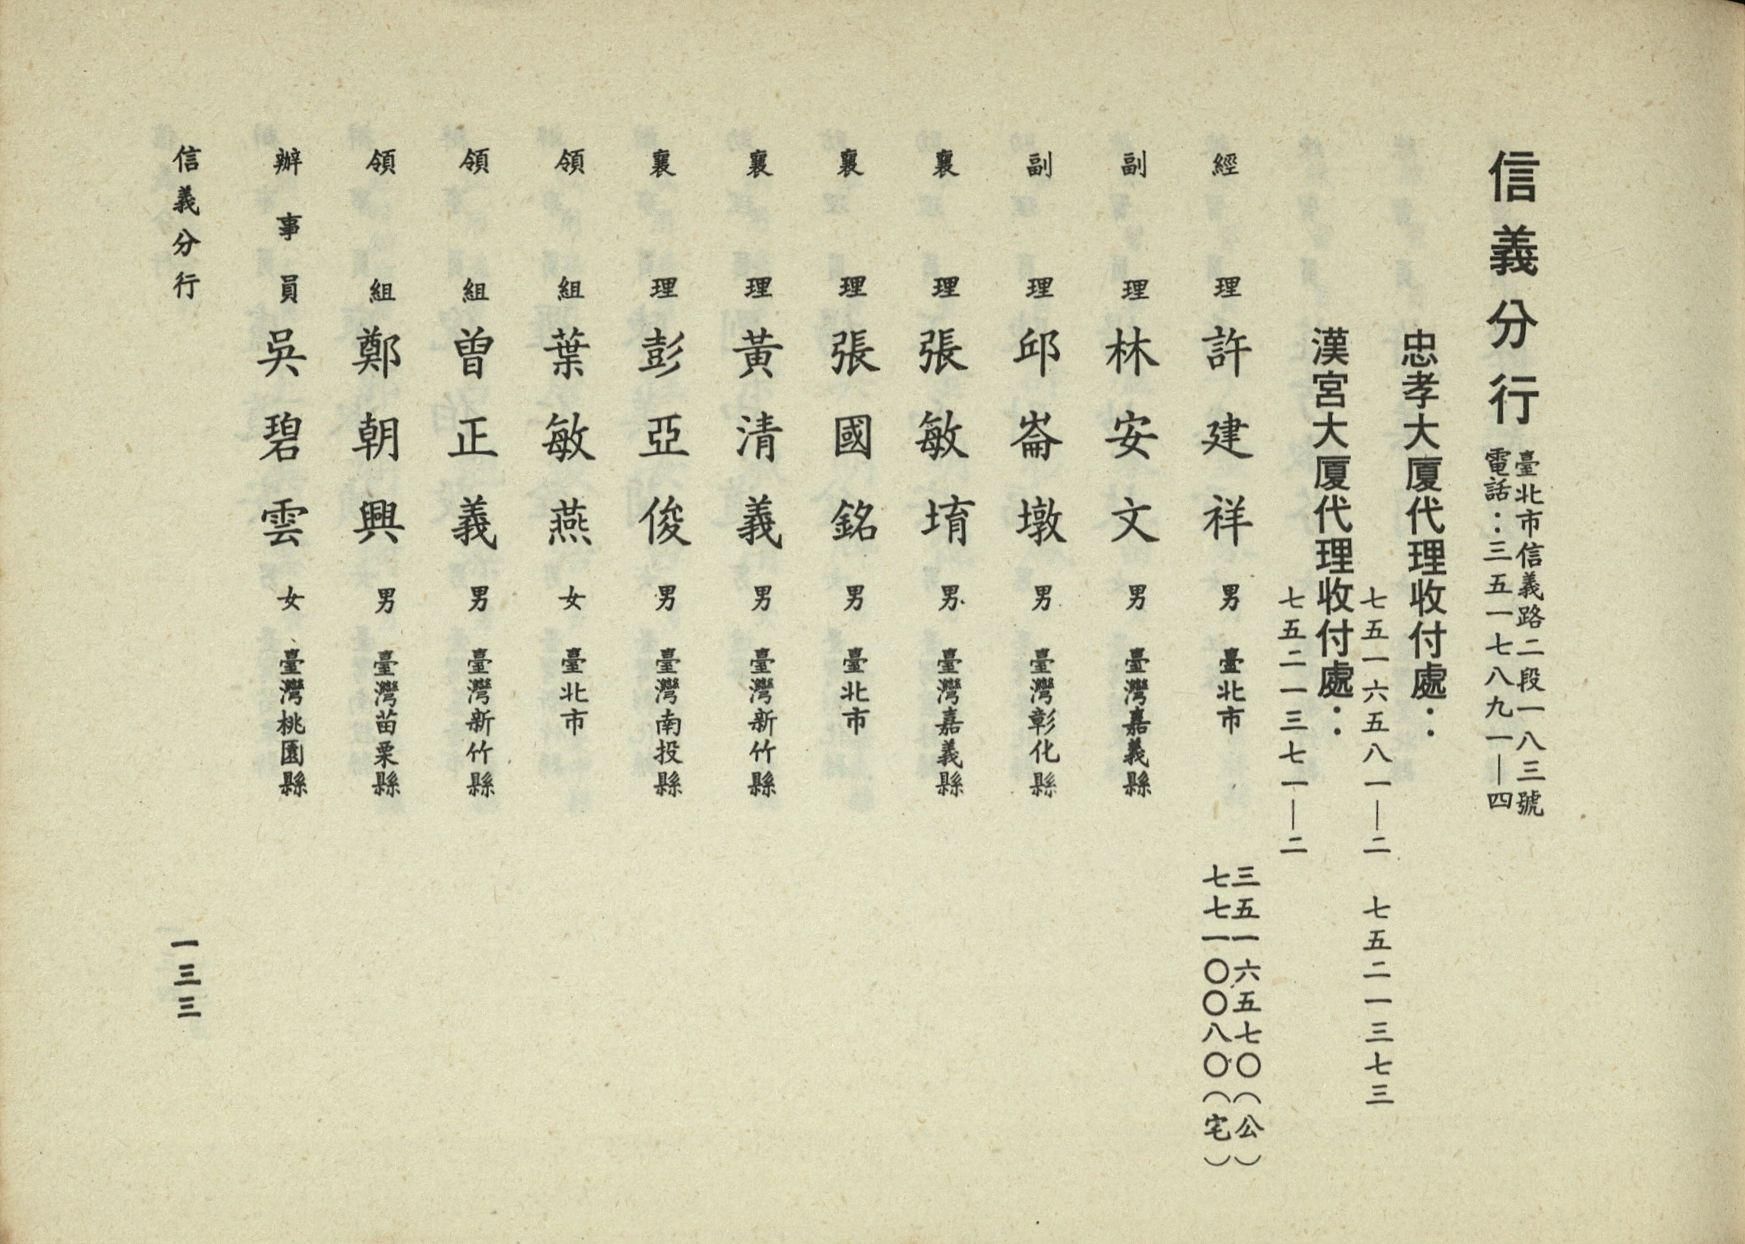 信義分行
臺北市信義路二段一八三號
電話：三五一七八九一—四
忠孝大廈代理收付處：
七五一六五八一—二 七五二一三七三
漢宮大廈代理收付處：
七五二一三七一—二
經理 許建祥 男 臺北市 三五一六五七〇（公）
七七一〇〇八〇（宅）
副理 林安文 男 臺灣嘉義縣
副理 邱崙墩 男 臺灣彰化縣
襄理 張敏堉 男 臺灣嘉義縣
襄理 張國銘 男 臺北市
襄理 黃清義 男 臺灣新竹縣
襄理 彭亞俊 男 臺灣南投縣
領組 葉敏燕 女 臺北市
領組 曾正義 男 臺灣新竹縣
領組 鄭朝興 男 臺灣苗栗縣
辦事員 吳碧雲 女 臺灣桃園縣
信義分行
一三三